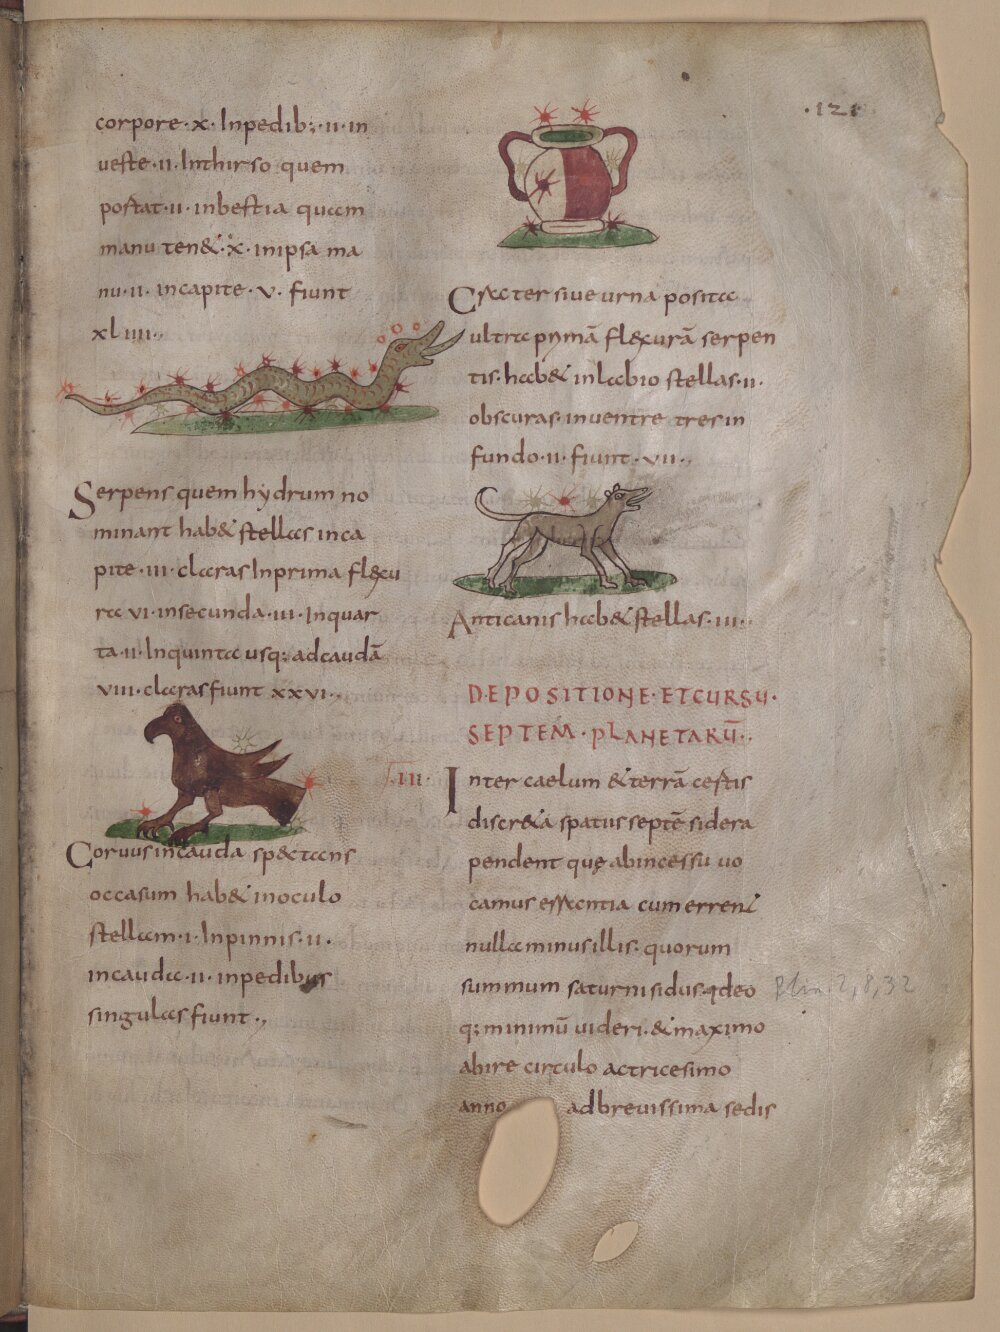 ·121·
corpore·x·Inpedib;·ii·in
ueste·ii·Inthirso quem
portat·ii·inbestia quam
manu ten&·x·inipsa ma
nu·ii·incapite·v·fiunt
xliiii·,
Serpens quem hydrum no
minant hab& stellas inca
pite·iii·claras Inprima flexu
ra vi·insecunda·iii·Inquar
ta·ii·Inquinta usq; adcaudā
viii·claras fiunt xxvi·,
Coruus incauda spectans
occasum hab& inoculo
stellam·i·Inpinnis·ii·
incauda·ii·inpedibus
singulas fiunt·,
Crater siue urna posita
ultra primā flexurā serpen
tis·hab& inlabio stellas·ii·
obscuras·inuentre tres in
fundo·ii·fiunt·vii·,
Anticanis hab& stellas·iii·,
DEPOSITIONE·ETCURSU·
SEPTEM·PLANETARŪ·,
·III· Inter caelum &terrā certis
discr&a spatiis septē sidera
pendent quę abincessu uo
camus errantia cum erren&
nulla minus illis·quorum
summum saturni sidus·ideo
q; minimū uideri·&maximo
abire circulo actricesimo
anno adbreuissima sedis
Plin 2,8,32